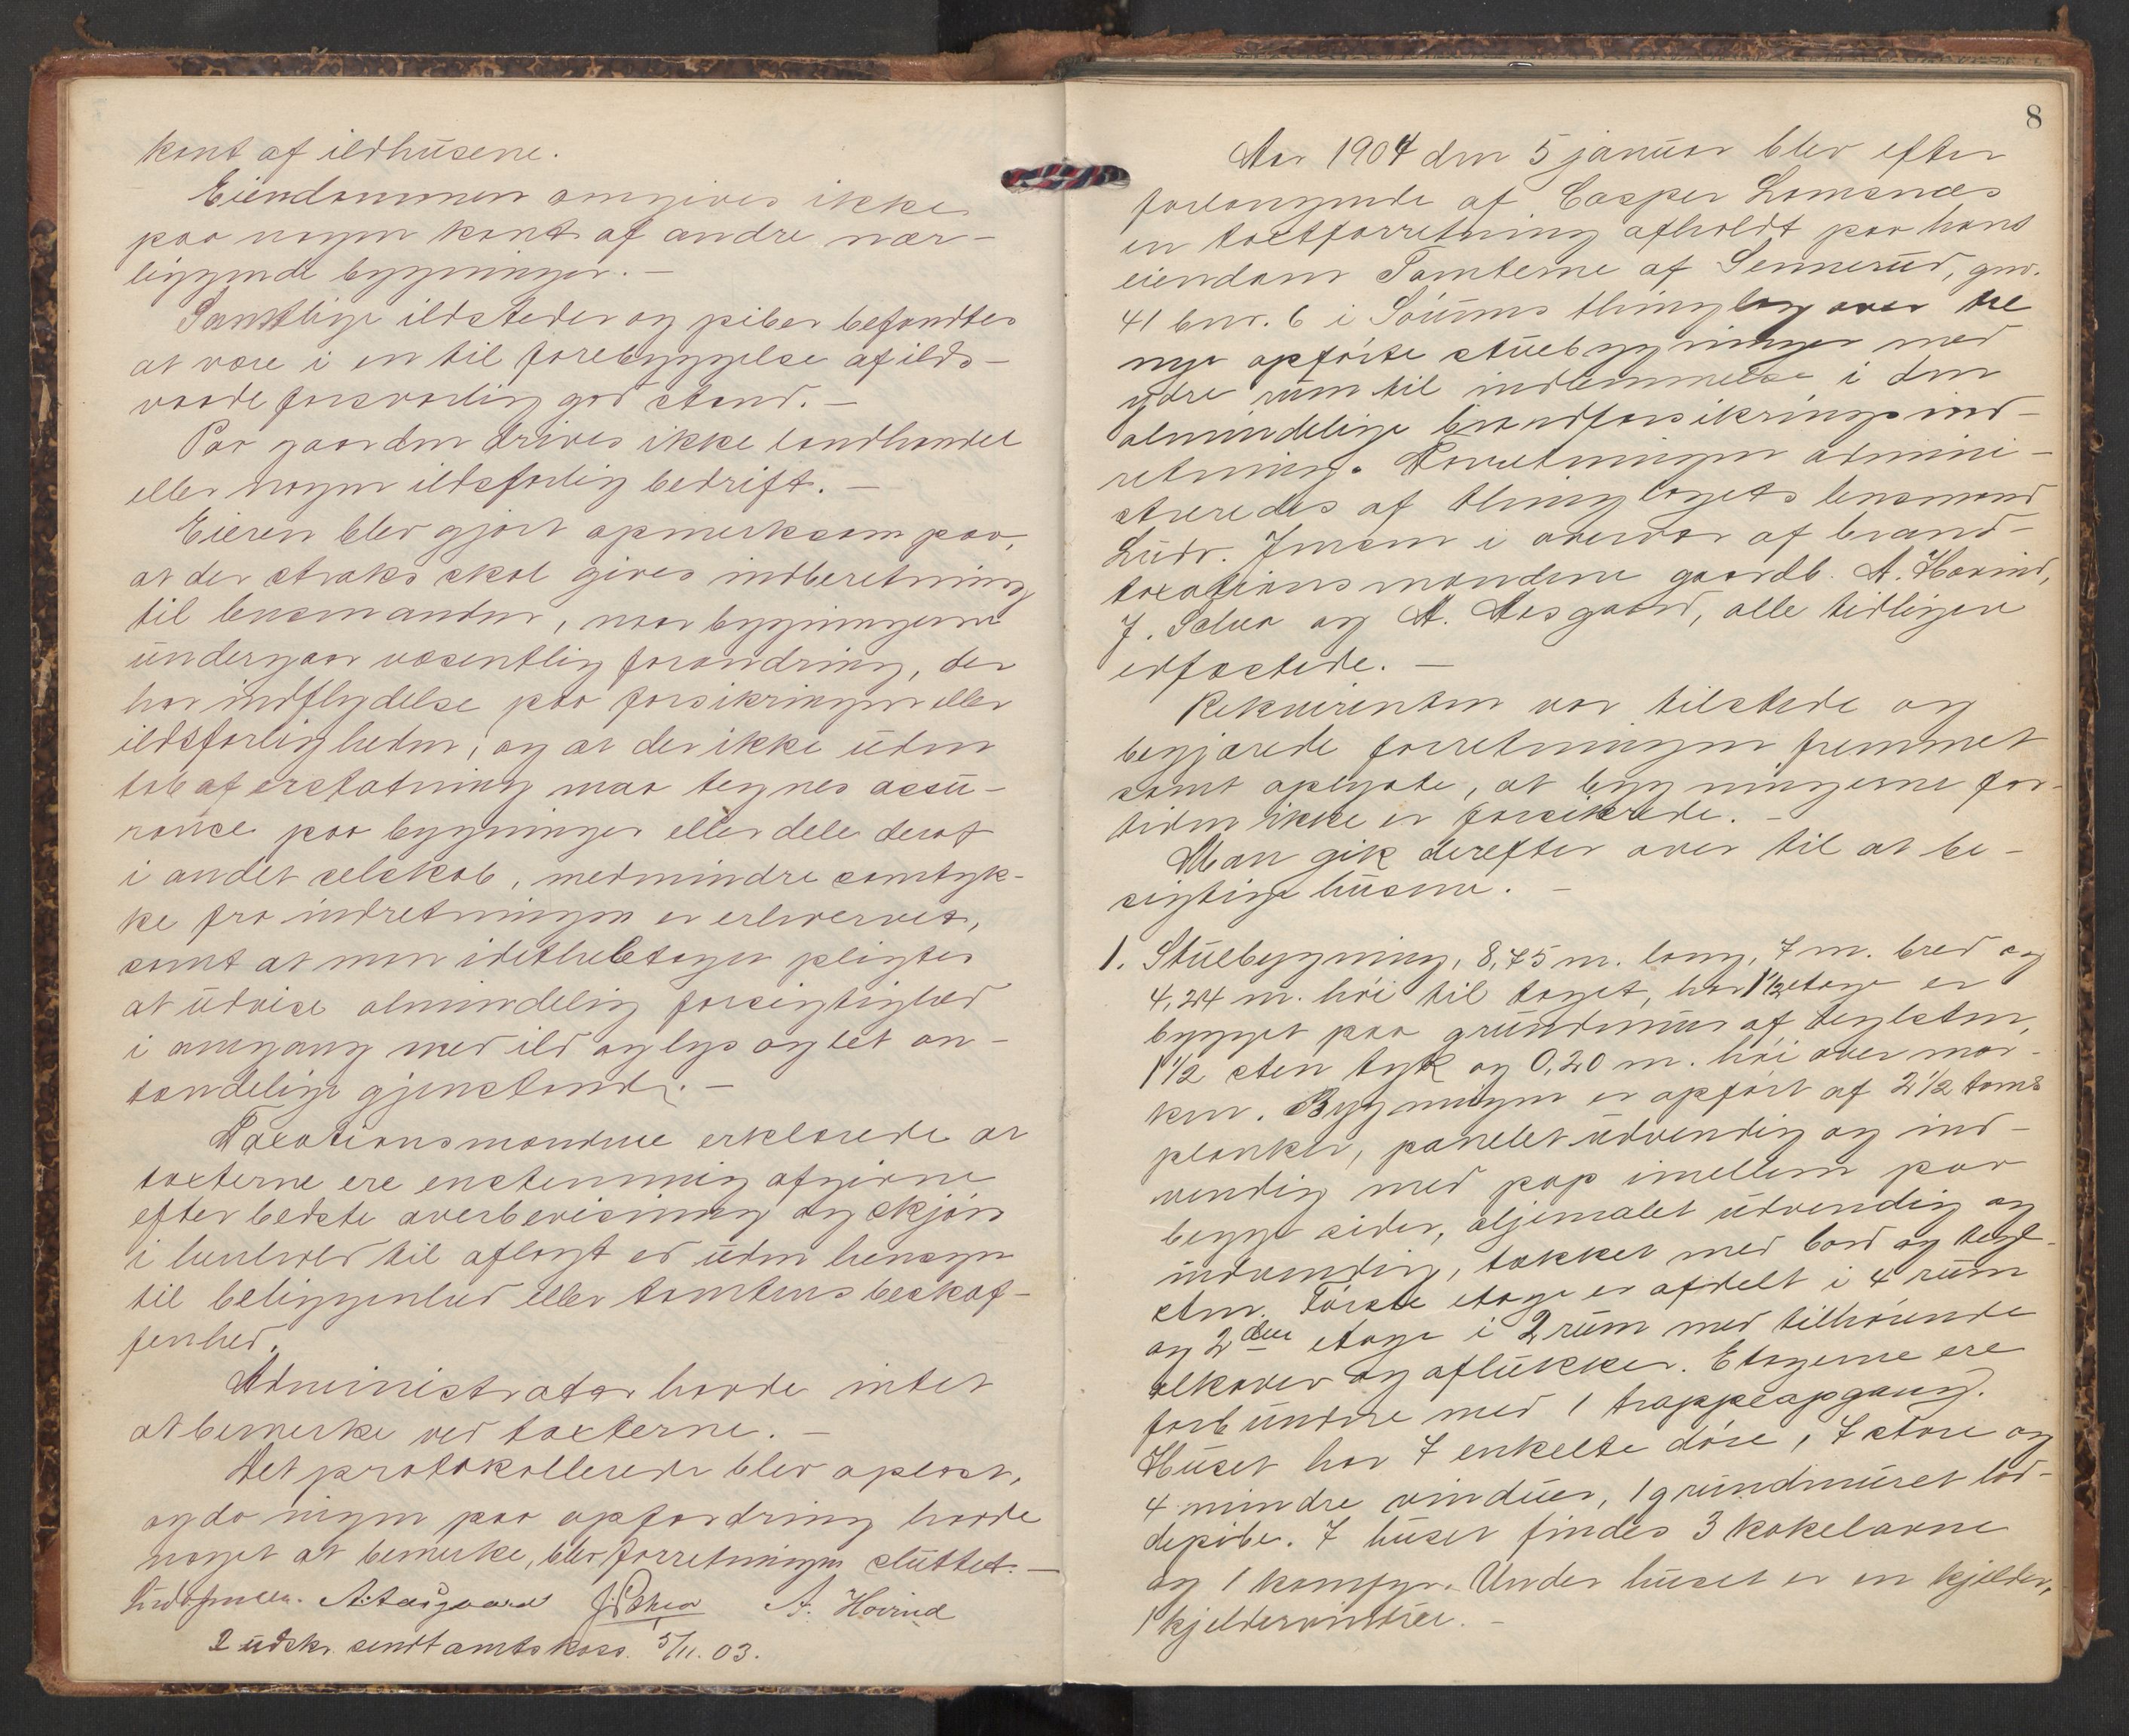 kant af ildhusene.
Eiendommen omgives ikke
paa nogen kant af andre nær-
liggende bygninger. —
Samtlige ildsteder og piber befandtes
at være i en til forebyggelse af ilds-
vaade forsvarlig god stand. —
Paa gaarden drives ikke landhandel
eller nogen ildsfarlig bedrift. —
Eieren blev gjort opmerksom paa,
at der straks skal gives indberetning
til lensmanden, naar bygningerne
undergaar væsentlig forandring, der
har indflydelse paa forsikringen eller
ildsfarligheden, og at der ikke uden
tab af erstatning maa tegnes assu-
rance paa bygninger eller dele deraf
i andet selskab, medmindre samtyk-
ke fra indretningen er erhvervet,
samt at man idethele taget pligter
at udvise almindelig forsigtighed
i omgang med ild og lys og let an-
tændelige gjenstande. —
Taxationsmændene erklærede at
taxterne ere enstemmig afgivne
efter bedste overbevisning og skjøn
i henhold til aflagt ed uden hensyn
til beliggenhed eller tomtens beskaf-
fenhed.
Administrator havde intet
at bemerke ved taxterne. —
Det protokollerede blev oplæst,
og da ingen paa opfordring havde
noget at bemerke, blev forretningen sluttet. —
Ludv Jensen. A. Aasgaard J. Schea A. Hovind
2 udskr. sendt amtskass. 5/11. 03.
8
Aar 1904 den 5 januar blev efter
forlangende af Casper Lomsnæs
en taxtforretning afholdt paa hans
eiendom Tomterne af Sennerud, gnr.
41 bnr. 6 i Sørums thinglag over tre
nye opførte stuebygninger med
ydre rum til indlemmelse i den
almindelige brandforsikringsind-
retning. Forretningen admini-
streredes af thinglagets lensmand
Ludv. Jensen i overvær af brand-
taxationsmændene gaardb. A. Hovind,
J. Schea og A. Aasgaard, alle tidligere
edfæstede. —
Rekvirenten var tilstede og
begjærede forretningen fremmet
samt oplyste, at bygningerne for
tiden ikke er forsikrede. —
Man gik derefter over til at be-
sigtige husene. —
1. Stuebygning, 8,75 m. lang, 7 m. bred og
4,24 m. høi til taget, har 1½ etage er
bygget paa grundmur af teglsten,
1½ sten tyk og 0,20 m. høi over mar-
ken. Bygningen er opført af 2½ toms
planker, panelet udvendig og ind-
vendig med pap imellem paa
begge sider, oljemalet udvendig og
indvendig, tækket med bord og tegl-
sten. Første etage er afdelt i 4 rum
og 2den etage i 2 rum med tilhørende
alkover og aflukker. Etagerne ere
forbundne med 1 trappeopgang.
Huset har 7 enkelte døre, 7 store og
4 mindre vinduer, 1 grundmuret lod-
depibe. I huset findes 3 kakelovne
og 1 komfyr. Under huset er en kjelder,
1 kjeldervindue. —